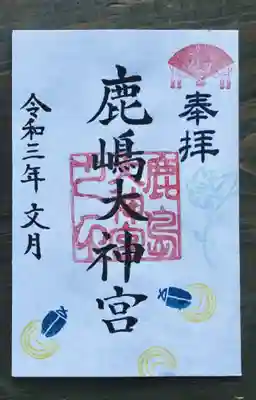 奉拝
鹿嶋大神宮
令和三年 文月